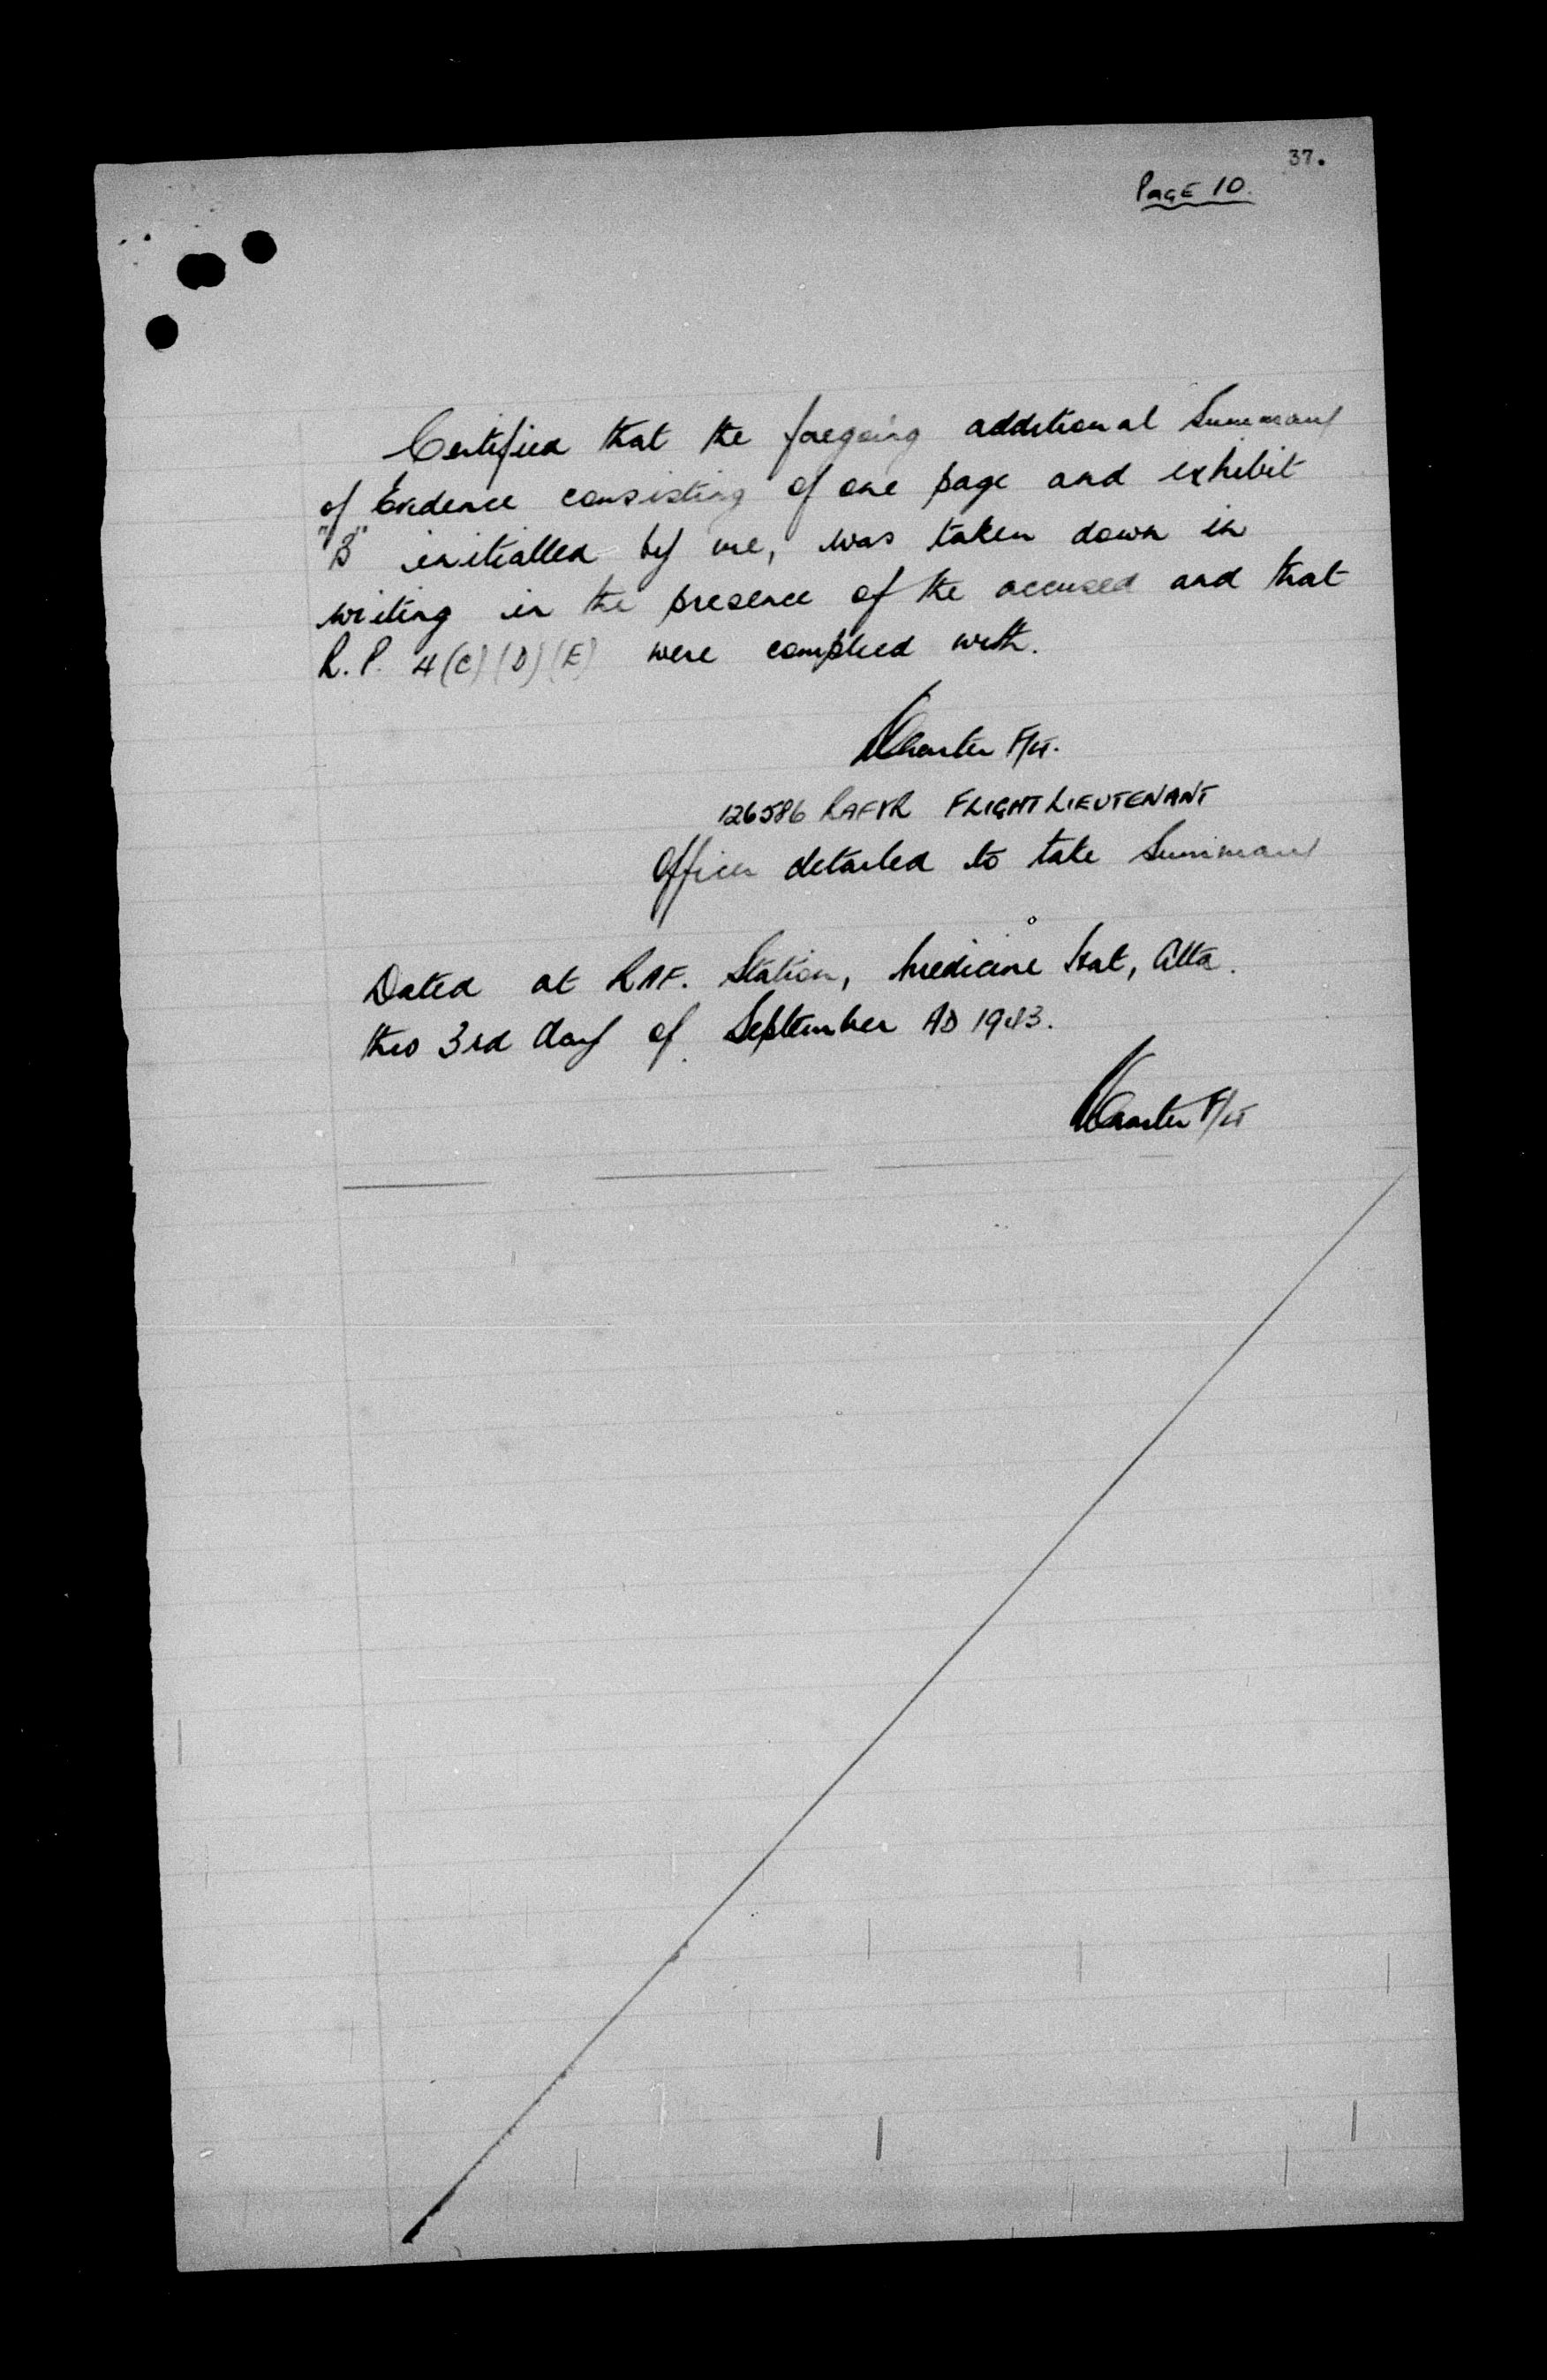 37.
PAGE 10.
Certified that the foregoing additional Summary
of Evidence consisting of one page and exhibit
"B" initialled by me, was taken down in
writing in the presence of the accused and that
R.P. 4(C)(D)(E) were complied with.
F/Lt.
126586 RAFVR FLIGHT LIEUTENANT
Officer detailed to take Summary
Dated at RAF. Station, Medicine Hat, Alta.
this 3rd day of September AD 1943.
F/Lt